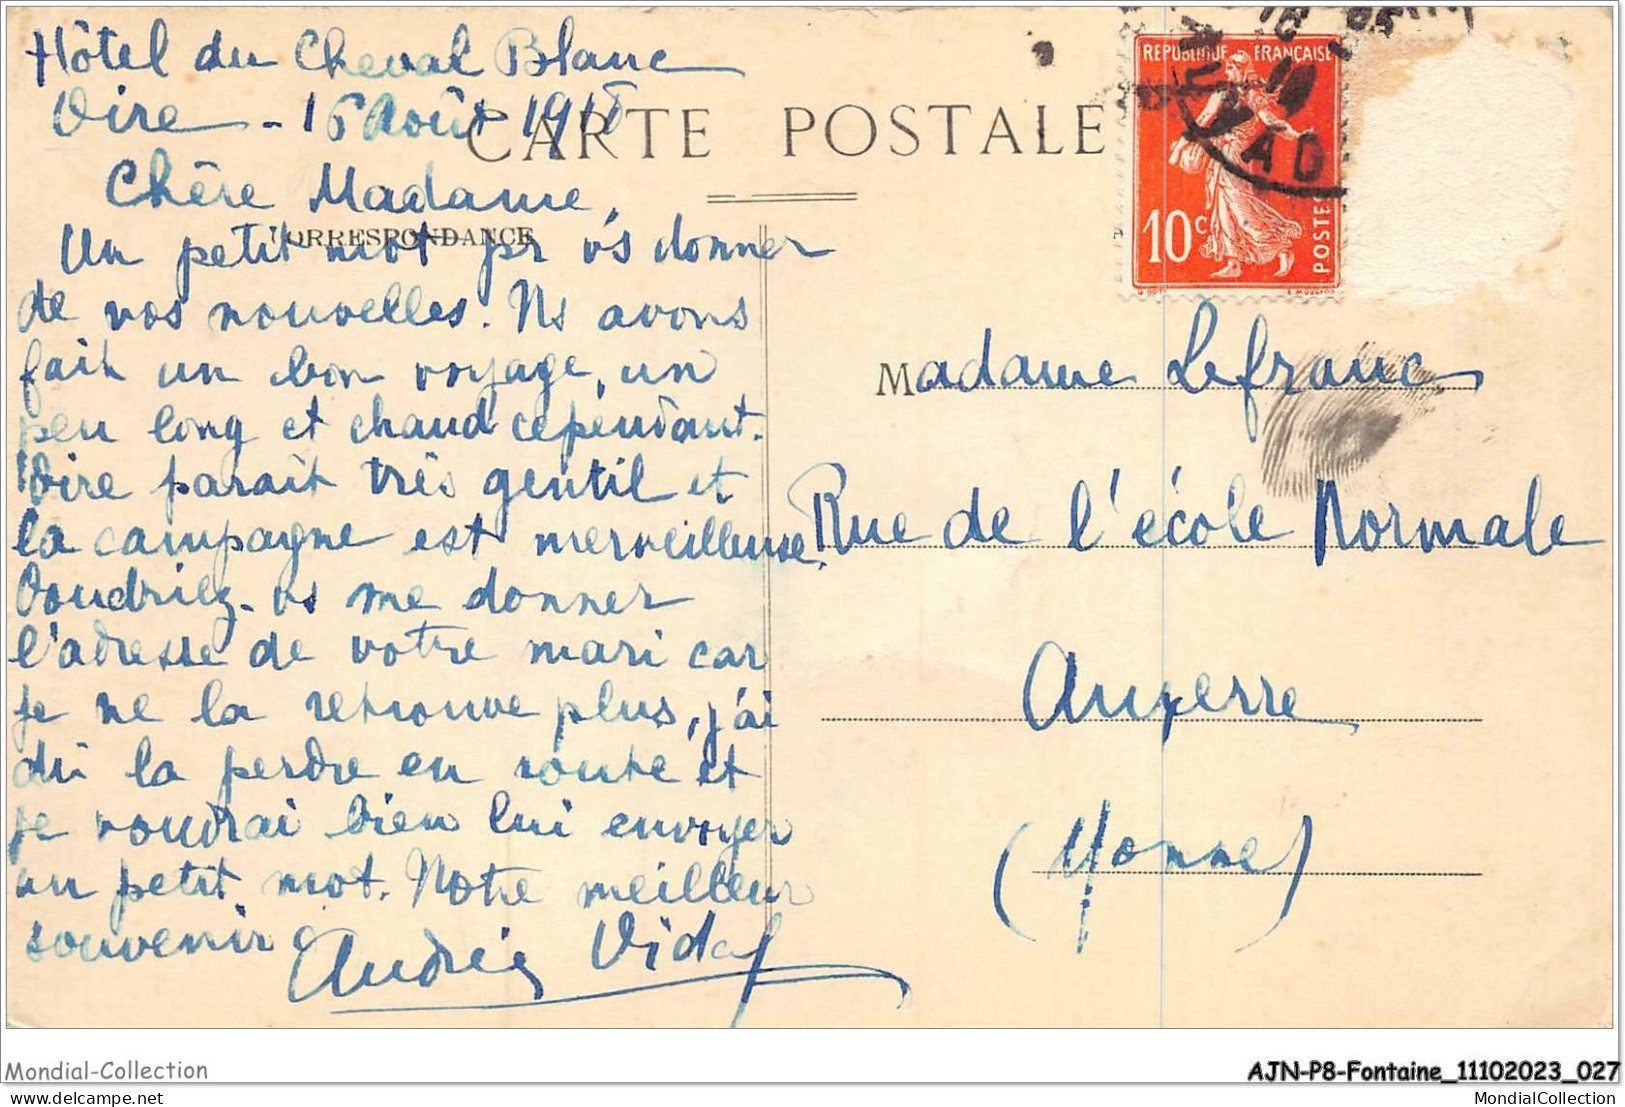 Hôtel du Cheval Blanc
Vire - 16 Août 1918
CARTE POSTALE
Chère Madame,
CORRESPONDANCE
Un petit mot pr vs donner
de vos nouvelles. Ns avons
fait un bon voyage, un
peu long et chaud cependant.
Vire parait très gentil et
la campagne est merveilleuse.
Voudriez-vs me donner
l'adresse de votre mari car
je ne la retrouve plus, j'ai
dû la perdre en route et
je voudrai bien lui envoyer
un petit mot. Notre meilleur
souvenir
Vidal
REPUBLIQUE FRANÇAISE
10c
POSTES
Madame Lefranc
Rue de l'école Normale
Auxerre
(Yonne)
Mondial-Collection
AJN-P8-Fontaine_11102023_027
MondialCollection